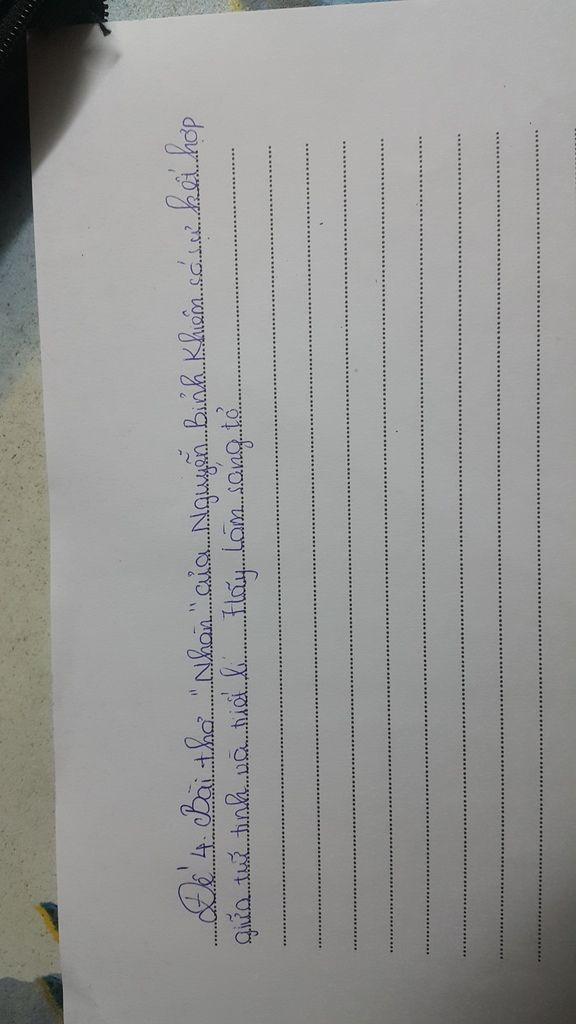 Đề 4. Bài thơ "Nhàn" của Nguyễn Bỉnh Khiêm có sự kết hợp
giữa trữ tình và triết lí. Hãy làm sáng tỏ